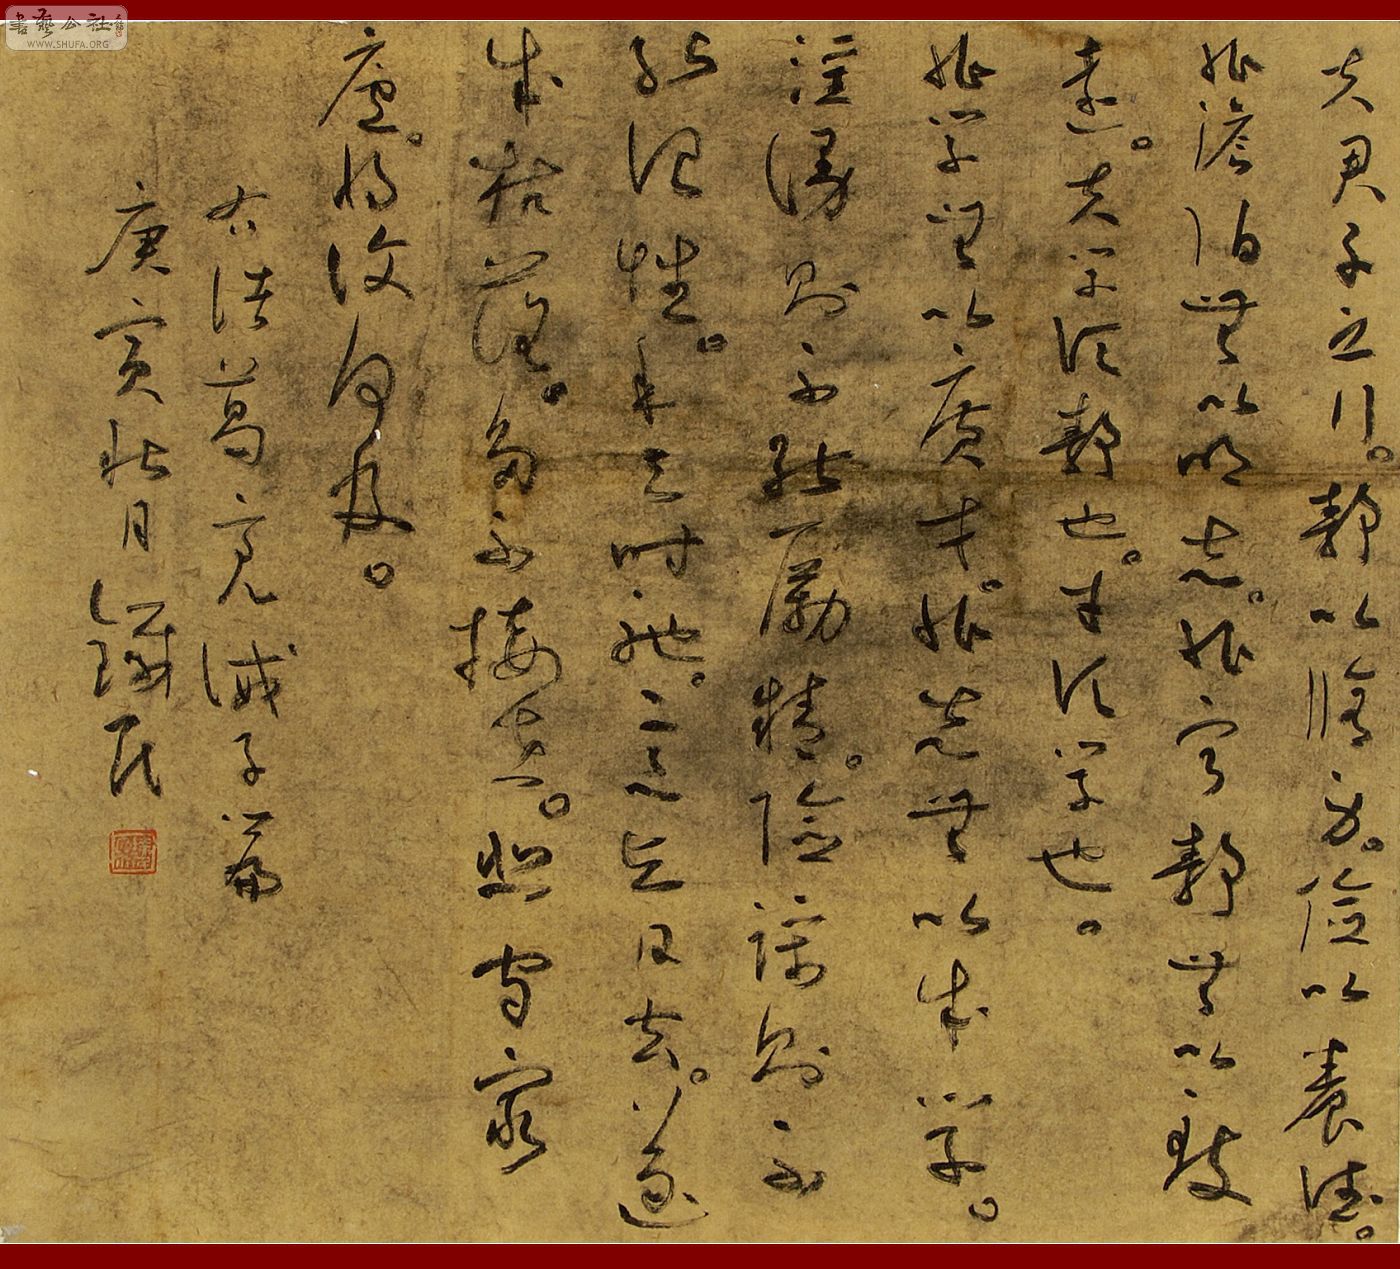 書藝公社
WWW.SHUFA.ORG
夫君子之行。靜以脩身。儉以養德。
非澹泊無以明志。非寧靜無以致
遠。夫學須靜也。才須學也。
非學無以廣才。非志無以成學。
淫漫則不能勵精。險躁則不
能治性。年与時馳。意与日去。遂
成枯落。多不接世。悲守窮
廬。將復何及。
右諸葛亮誡子篇
庚寅秋月鐵民